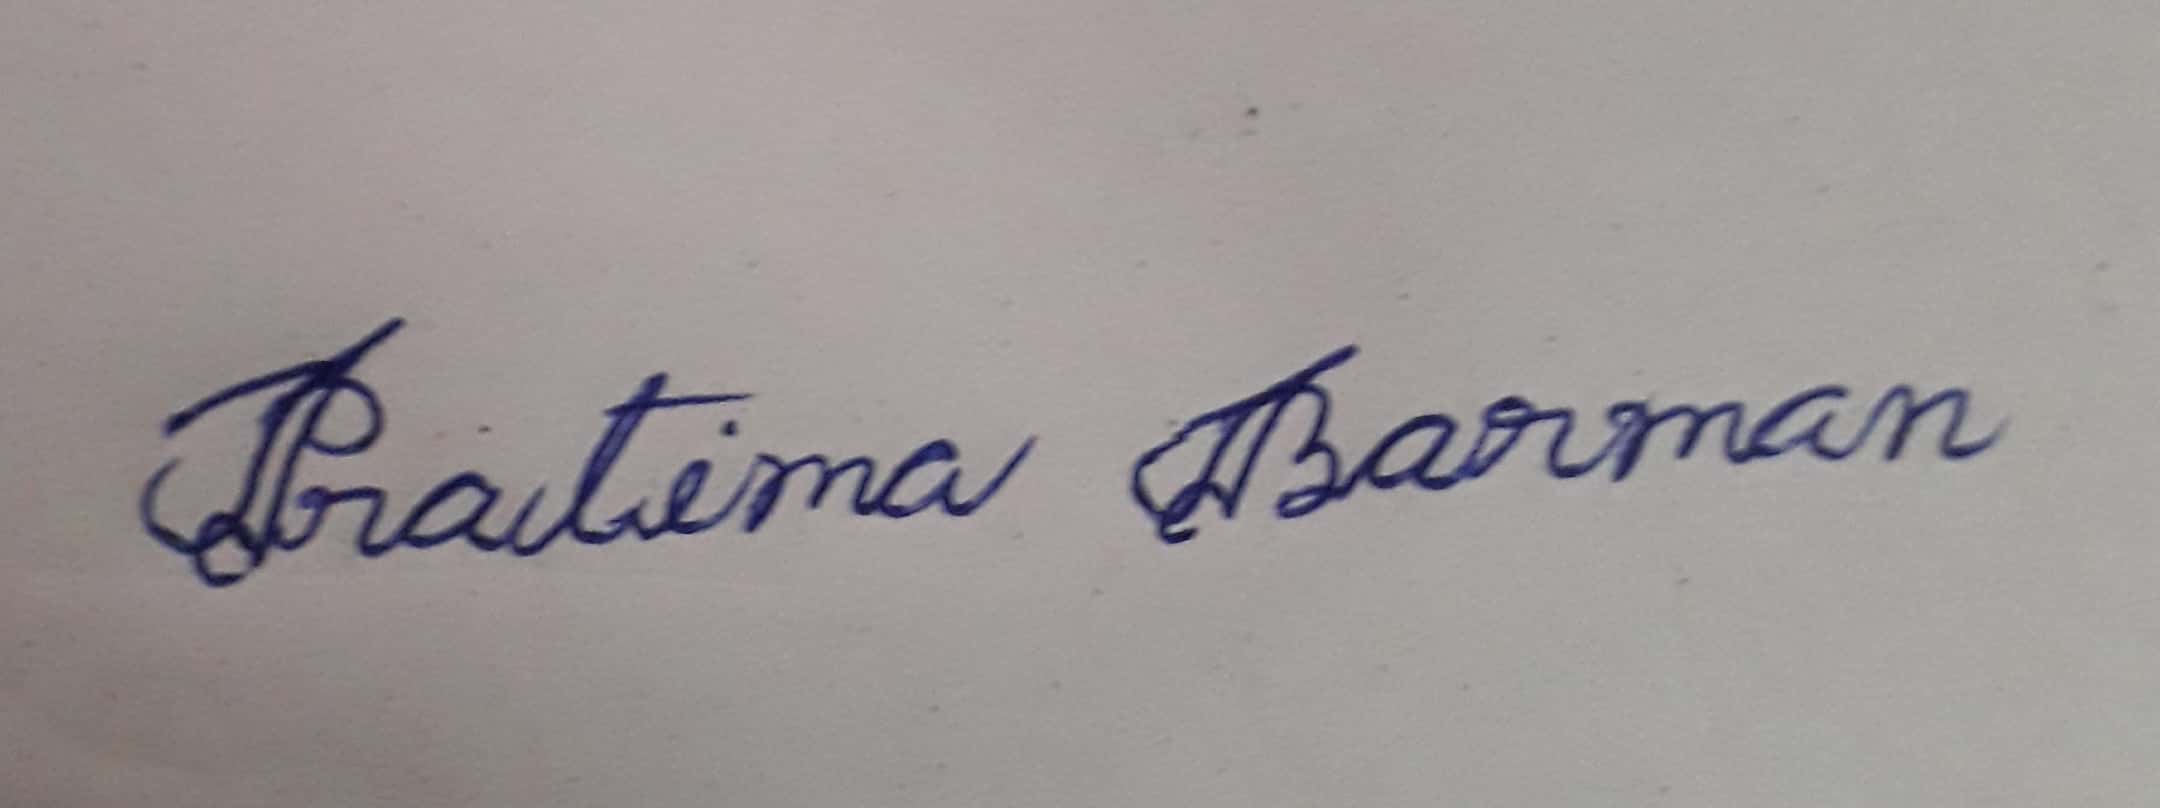 Pratima Barman